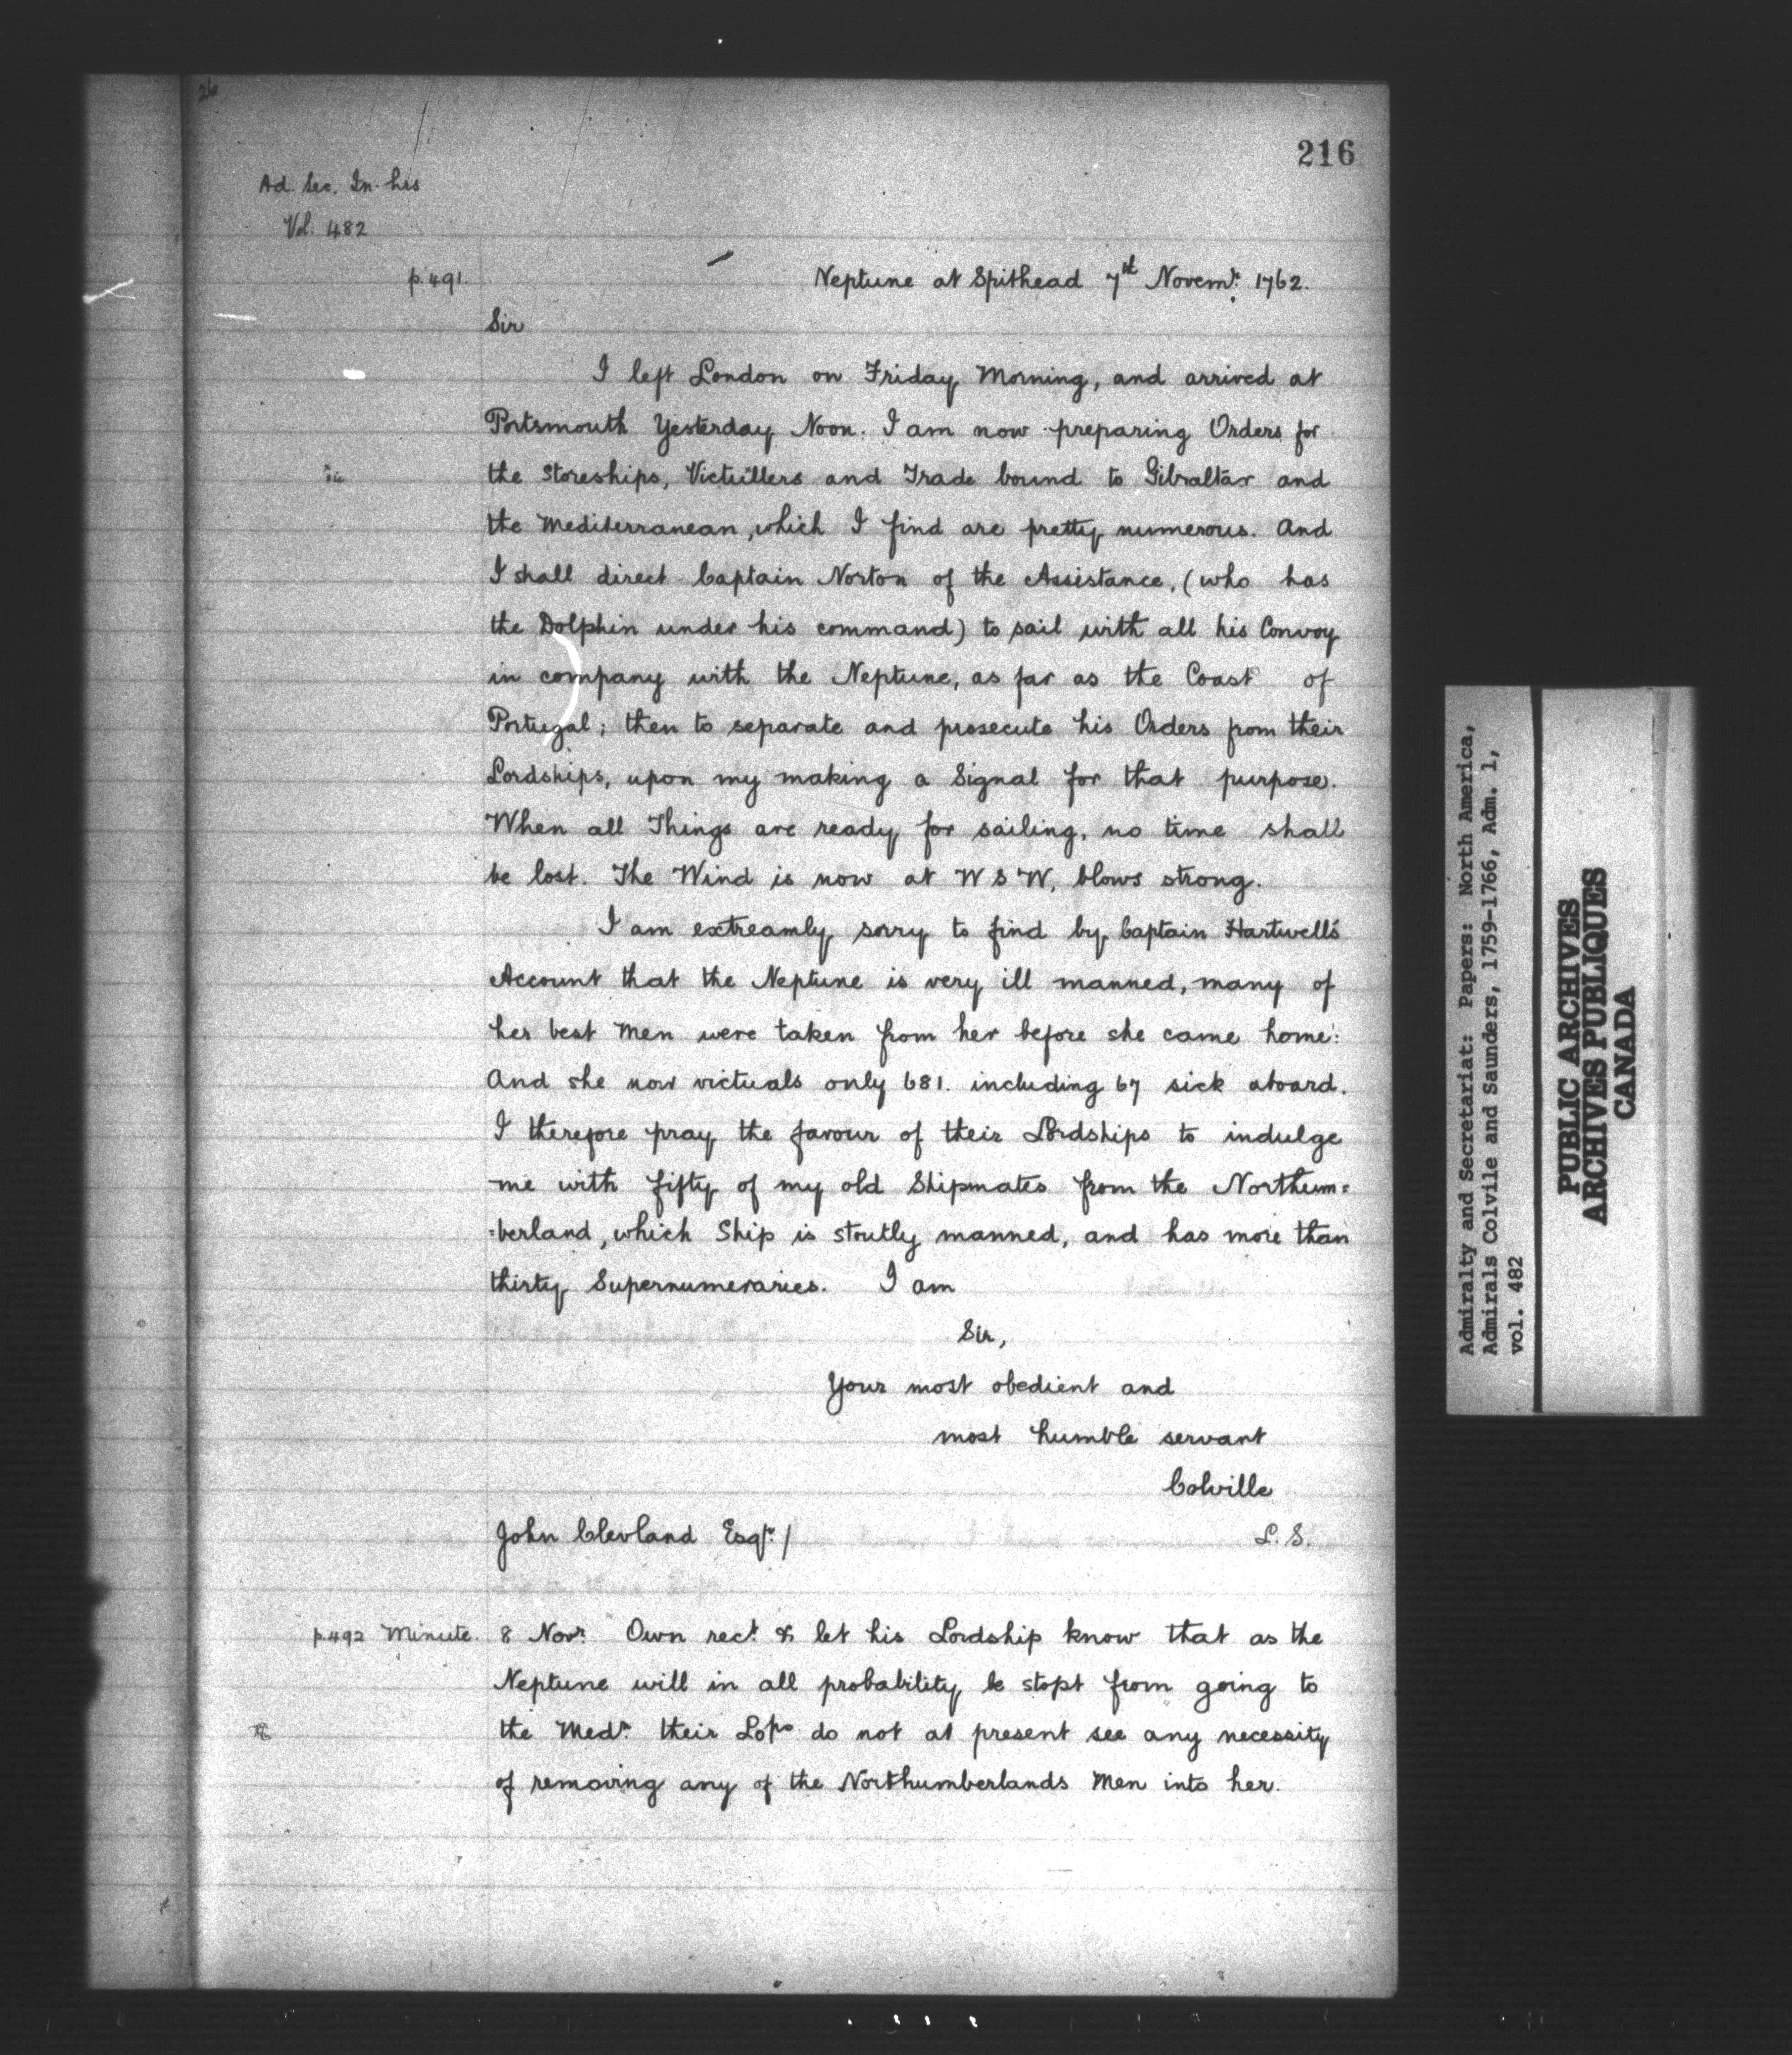 26
216
Ad. Sec. In. Lrs
Vol. 482
p. 491.
Neptune at Spithead 7th Novemr. 1762.
Sir
I left London on Friday Morning, and arrived at
Portsmouth Yesterday Noon. I am now preparing Orders for
sic
the Storeships, Victüllers and Trade bound to Gibraltar and
the Mediterranean, which I find are pretty numerous. And
I shall direct Captain Norton of the Assistance, (who has
the Dolphin under his command) to sail with all his Convoy
in company with the Neptune, as far as the Coast of
Portugal; then to separate and prosecute his Orders from their
Lordships, upon my making a Signal for that purpose.
When all Things are ready for sailing, no time shall
be lost. The Wind is now at W S W, blows strong.
I am extreamly sorry to find by Captain Hartwell's
Account that the Neptune is very ill manned, many of
her best Men were taken from her before she came home:
And she now victuals only 681. including 67 sick aboard.
I therefore pray the favour of their Lordships to indulge
me with fifty of my old Shipmates from the Northum=
=berland, which Ship is stoutly manned, and has more than
thirty Supernumeraries. I am
Sir,
Your most obedient and
most humble servant
Colville
John Clevland Esqr. /
L. S.
p. 492 Minute. 8 Novr. Own rect. & let his Lordship know that as the
Neptune will in all probability be stopt from going to
the Medn. their Lops do not at present see any necessity
of removing any of the Northumberlands Men into her.
Admiralty and Secretariat: Papers: North America,
Admirals Colvile and Saunders, 1759-1766, Adm. 1,
vol. 482
PUBLIC ARCHIVES
ARCHIVES PUBLIQUES
CANADA